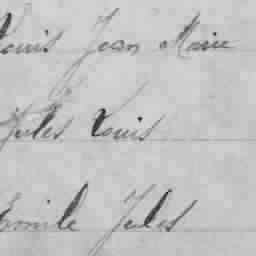 Louis Jean Marie
Jules Louis
Emile Jules